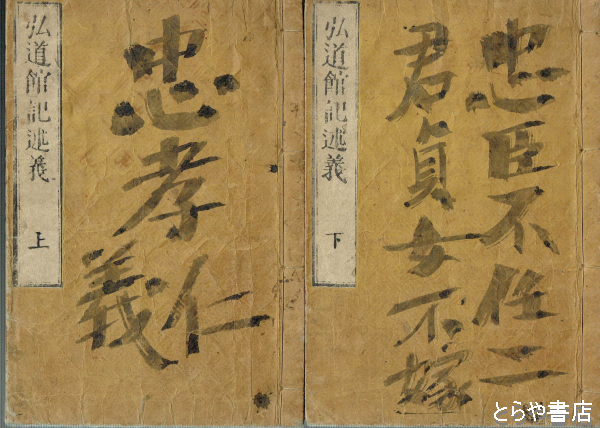 弘道館記述義 上
忠孝
仁
義
弘道館記述義 下
忠臣不任二
君貞女不嫁
とらや書店